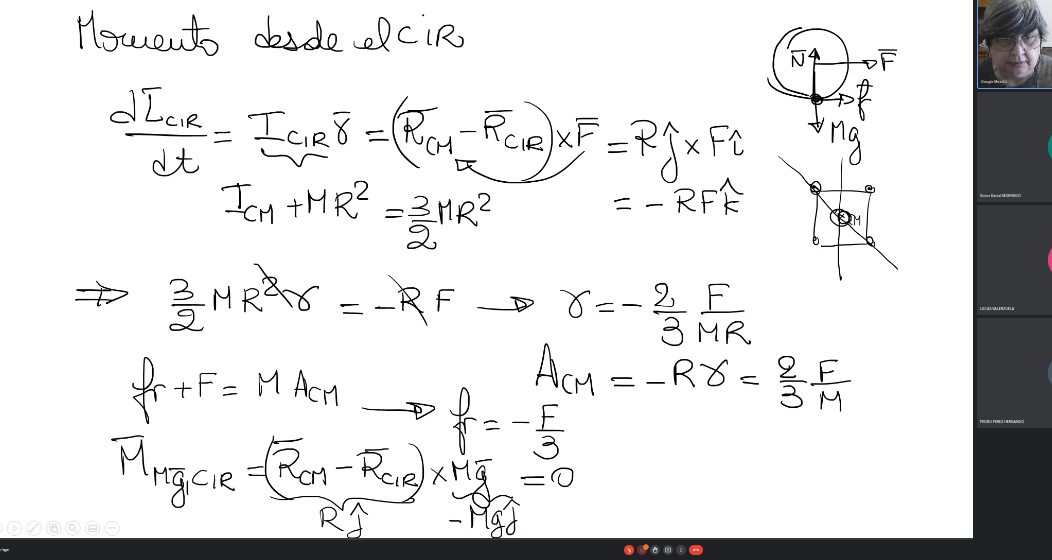 Momento desde el CIR
dL̄_CIR/dt = I_CIR γ̄ = (R̄_CM − R̄_CIR) × F̄ = Rĵ × Fî
I_CM + MR² = 3/2 MR²
= − RFk̂
⇒ 3/2 MR² γ = − R F → γ = − 2/3 F/MR
fr + F = M A_CM → fr = − F/3
A_CM = − Rγ = 2/3 F/M
M̄_Mḡ,CIR = (R̄_CM − R̄_CIR) × Mḡ = 0
Rĵ
− Mgĵ
N̄
F̄
f̄r
Mg
M
LUCAS VALENZUELA
PEDRO PEREZ HERNANDO